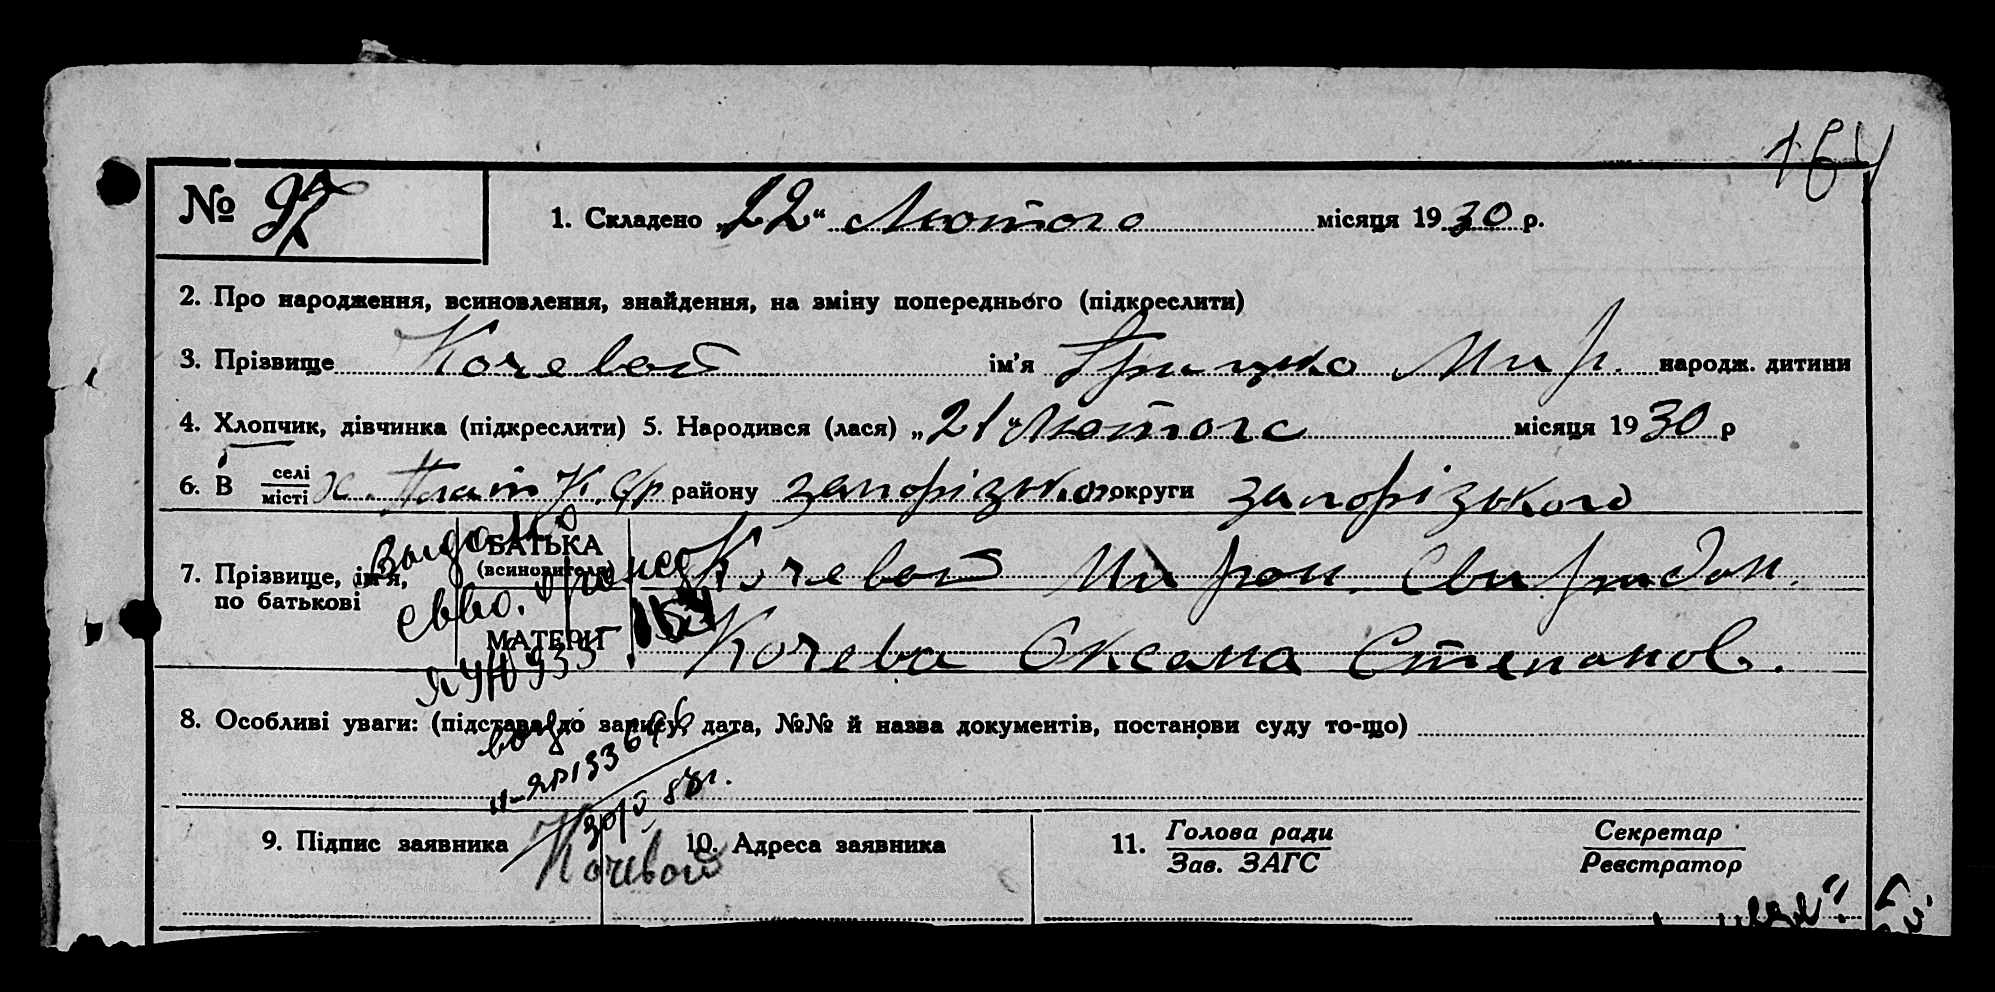 164
№ 97
1. Складено „22“ Лютого місяця 1930 р.
2. Про народження, всиновлення, знайдення, на зміну попереднього (підкреслити)
3. Прізвище Кочевой ім'я Грицко Мир. народж. дитини
4. Хлопчик, дівчинка (підкреслити) 5. Народився (лася) „21“ Лютого місяця 1930 р
6. В селі місті х. району запорізького округи запорізького
7. Прізвище, ім'я, по батькові
БАТЬКА (всиновителя) Кочевой Мирон Свиридон.
МАТЕРИ Кочева Оксана Степанов.
8. Особливі уваги: (підстава до запису, дата, №№ й назва документів, постанови суду то-що)
9. Підпис заявника Кочевой
10. Адреса заявника
11. Голова ради Зав. ЗАГС
Секретар Реєстратор